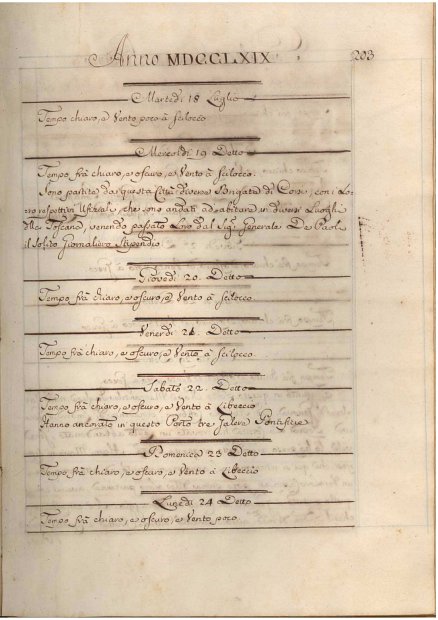 Anno MDCCLXIX
203
Martedì 18 Luglio
Tempo chiaro, e Vento poco à Scilocco
Mercoldì 19 Detto
Tempo frà chiaro, e oscuro, e Vento à Scilocco.
Sono partite da questa Città diverse Brigate di Corsi, con i Lo=
ro respettivi Ufiziali, che sono andati ad abitare in diversi Luoghi
della Toscana, venendo passato Loro dal Sig.r Generale De Paoli
il solito giornaliero Stipendio
Giovedì 20. Detto
Tempo frà chiaro, e oscuro, e Vento à Scilocco
Venerdì 21. Detto
Tempo frà chiaro, e oscuro, e Vento à Scilocco
Sabato 22. Detto
Tempo frà chiaro, e oscuro, e Vento à Libeccio
Hanno ancorato in questo Porto tre Galere Pontificie
Domenica 23 Detto
Tempo frà chiaro, e oscuro, e Vento à Libeccio
Lunedì 24 Detto
Tempo frà chiaro, e oscuro, e Vento poco